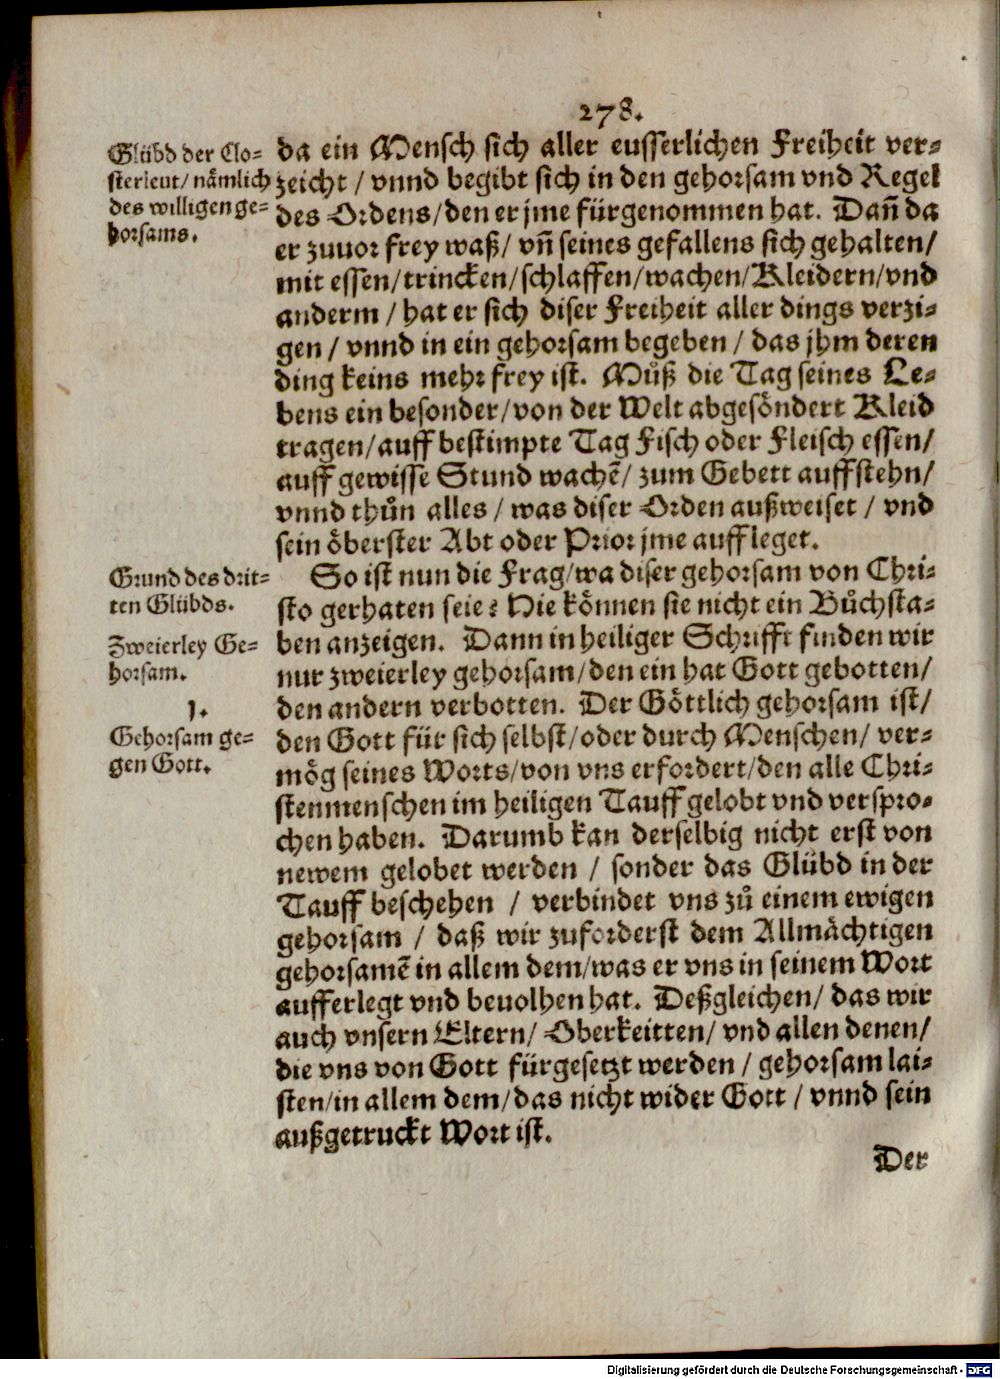 278.
Glübd der Clo-
sterleut/ nämlich
des willigen ge-
horsams.
da ein Mensch sich aller eusserlichen Freiheit ver-
zeicht / vnnd begibt sich in den gehorsam vnd Regel
des Ordens/den er jme fürgenommen hat. Dañ da
er zuuor frey waß/ vñ seines gefallens sich gehalten/
mit essen/trincken/schlaffen/wachen/Kleidern/vnd
anderm / hat er sich diser Freiheit aller dings verzi-
gen / vnnd in ein gehorsam begeben / das jhm deren
ding keins mehr frey ist. Muͦß die Tag seines Le-
bens ein besonder/von der Welt abgesöndert Kleid
tragen/auff bestimpte Tag Fisch oder Fleisch essen/
auff gewisse Stund wachẽ/ zum Gebett auffstehn/
vnnd thuͦn alles / was diser Orden außweiset / vnd
sein öberster Abt oder Prior jme auffleget.
Grund des drit-
ten Glübds.
Zweierley Ge-
horsam.
1.
Gehorsam ge-
gen Gott.
So ist nun die Frag/wa diser gehorsam von Chri-
sto gerhaten seie? Hie können sie nicht ein Buͦchsta-
ben anzeigen. Dann in heiliger Schrifft finden wir
nur zweierley gehorsam/den ein hat Gott gebotten/
den andern verbotten. Der Göttlich gehorsam ist/
den Gott für sich selbst/oder durch Menschen/ ver-
mög seines Worts/von vns erfordert/den alle Chri-
stenmenschen im heiligen Tauff gelobt vnd verspro-
chen haben. Darumb kan derselbig nicht erst von
newem gelobet werden / sonder das Glübd in der
Tauff beschehen / verbindet vns zuͦ einem ewigen
gehorsam / daß wir zuforderst dem Allmächtigen
gehorsamẽ in allem dem/was er vns in seinem Wort
aufferlegt vnd beuolhen hat. Deßgleichen/ das wir
auch vnsern Eltern/ Oberkeitten/ vnd allen denen/
die vns von Gott fürgesetzt werden / gehorsam lai-
sten/in allem dem/das nicht wider Gott / vnnd sein
außgetruckt Wort ist.
Der
Digitalisierung gefördert durch die Deutsche Forschungsgemeinschaft - DFG